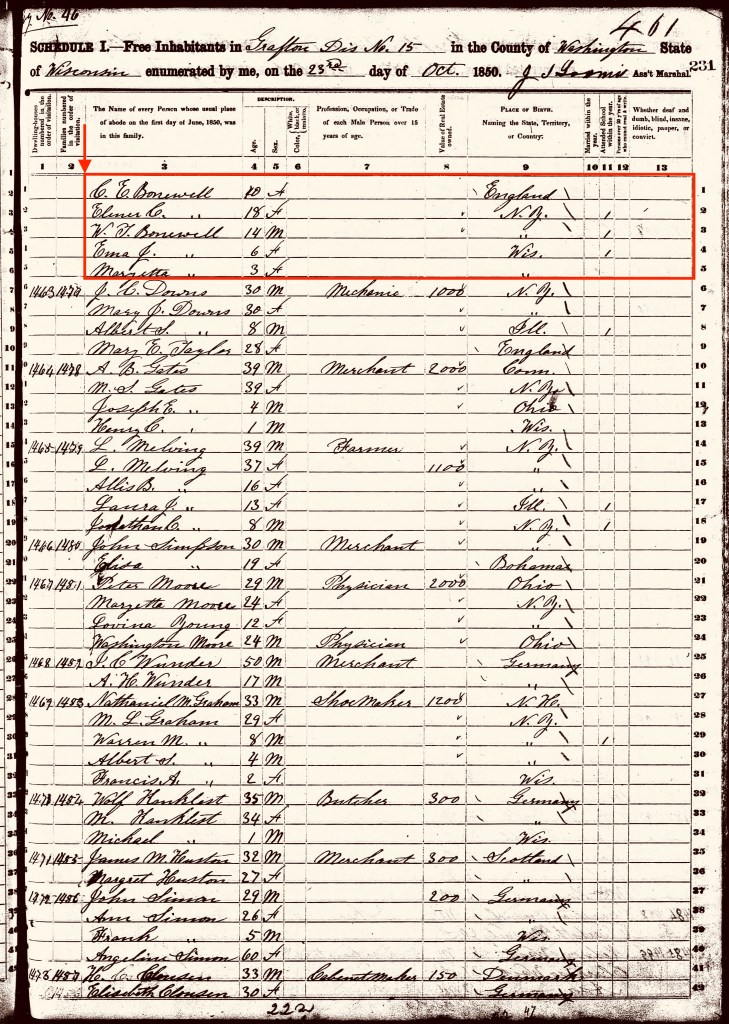 No. 46
461
SCHEDULE I.—Free Inhabitants in Grafton Dis No. 15 in the County of Washington State
of Wisconsin enumerated by me, on the 23rd day of Oct. 1850. J S Loomis Ass't Marshal. 231
Dwelling-houses numbered in the order of visitation.
Families numbered in the order of visitation.
The Name of every Person whose usual place of abode on the first day of June, 1850, was in this family.
DESCRIPTION.
Age.
Sex.
White, black, or mulatto.
Color,
Profession, Occupation, or Trade of each Male Person over 15 years of age.
Value of Real Estate owned.
PLACE OF BIRTH. Naming the State, Territory, or Country.
Married within the year.
Attended School within the year.
Whether deaf and dumb, blind, insane, idiotic, pauper, or convict.
1 2 3 4 5 6 7 8 9 10 11 12 13
1 C. E. Bonewell F England 1
2 Elmer C. " 18 F N.Y. 1 2
3 W. T. Bonewell 14 M " 1 3
4 Ema J. " 6 F Wis. 1 4
5 Margetta " 3 F " 5
6 1463 J. C. Downs 30 M Mechanic 1000 N.Y. 6
7 Mary J. Downs 30 F " 7
8 Albert S. " 8 M Ill. 1 8
9 Mary E. Taylor 28 F England 9
10 1464 1478 A. B. Gates 39 M Merchant 2000 Conn. 10
11 M. S. Gates 39 F N.Y. 11
12 Joseph E. " 4 M Ohio 12
13 Henry C. " 1 M Wis. 13
14 1465 1479 L. Melving 39 M Farmer N.Y. 14
15 L. Melving 37 F 1100 " 15
16 Allis B. " 16 F " 16
17 Laura J. " 13 F Ill. 1 17
18 Jonathan C. " 8 M N.Y. 1 18
19 1466 1480 John Simpson 30 M Merchant " 19
20 Elisa " 19 F Bohamas 20
21 1467 1481 Peter Moore 29 M Physician 2000 Ohio 21
22 Margetta Moore 24 F N.Y. 22
23 Lovina Young 12 F " 23
24 Washington Moore 24 M Physician Ohio 24
25 1468 1482 C Wunder 50 M Merchant Germany 25
26 A. H. Wunder 17 M " 26
27 1469 1483 Nathaniel M. Graham 33 M Shoe Maker 1200 N.H. 27
28 M. L. Graham 29 F N.Y. 28
29 Warren M. " 8 M " 1 29
30 Albert S. " 4 M " 30
31 Francis A. " 2 F Wis. 31
32 1470 1484 Wolf Hanklist 35 M Butcher 300 Germany 32
33 M. Hanklist 34 F " 33
34 Michael " 1 M Wis. 34
35 1471 1485 James M. Huston 32 M Merchant 300 Scotland 35
36 Margret Huston 27 F " 36
37 1472 1486 John Simon 29 M 200 Germany 37
38 Ann Simon 26 F " 38
39 Frank " 5 M Wis. 39
40 Angeline Simon 60 F Germany 40
41 1473 1487 H. C. Clousen 33 M Cabinet Maker 150 Denmark 41
42 Elisebeth Clousen 30 F Germany 42
222
47